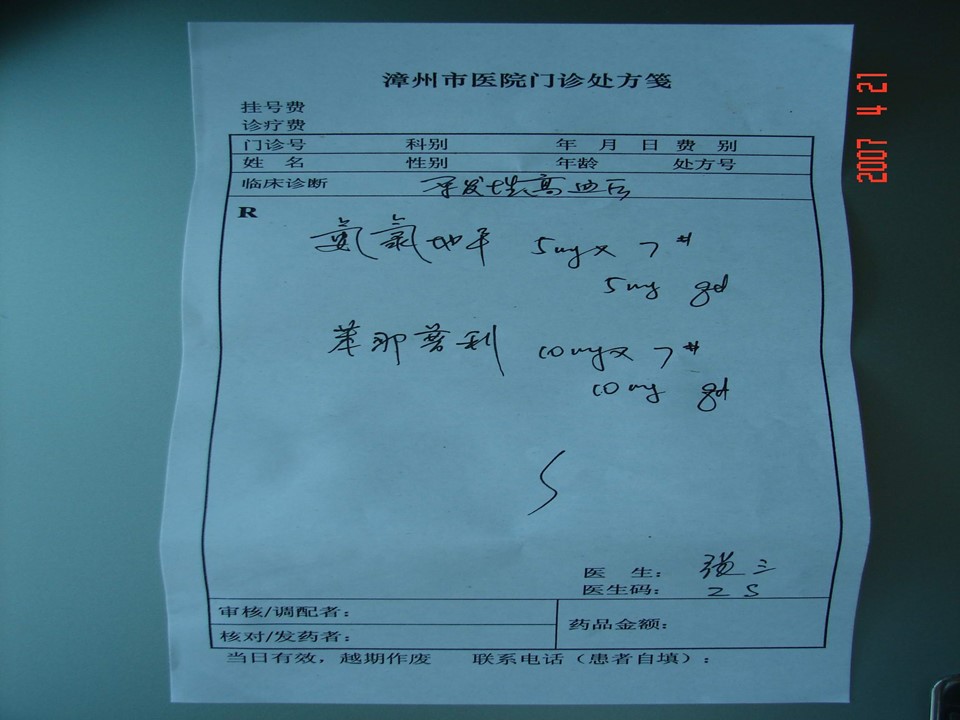 漳州市医院门诊处方笺
挂号费
诊疗费
门诊号 科别 年 月 日 费 别
姓 名 性别 年龄 处方号
临床诊断 原发性高血压
R
氨氯地平 5mg x 7#
5mg qd
苯那普利 10mg x 7#
10mg qd
医 生: 张三
医生码: ZS
审核/调配者:
药品金额:
核对/发药者:
当日有效，越期作废 联系电话（患者自填）:
2007 4 21